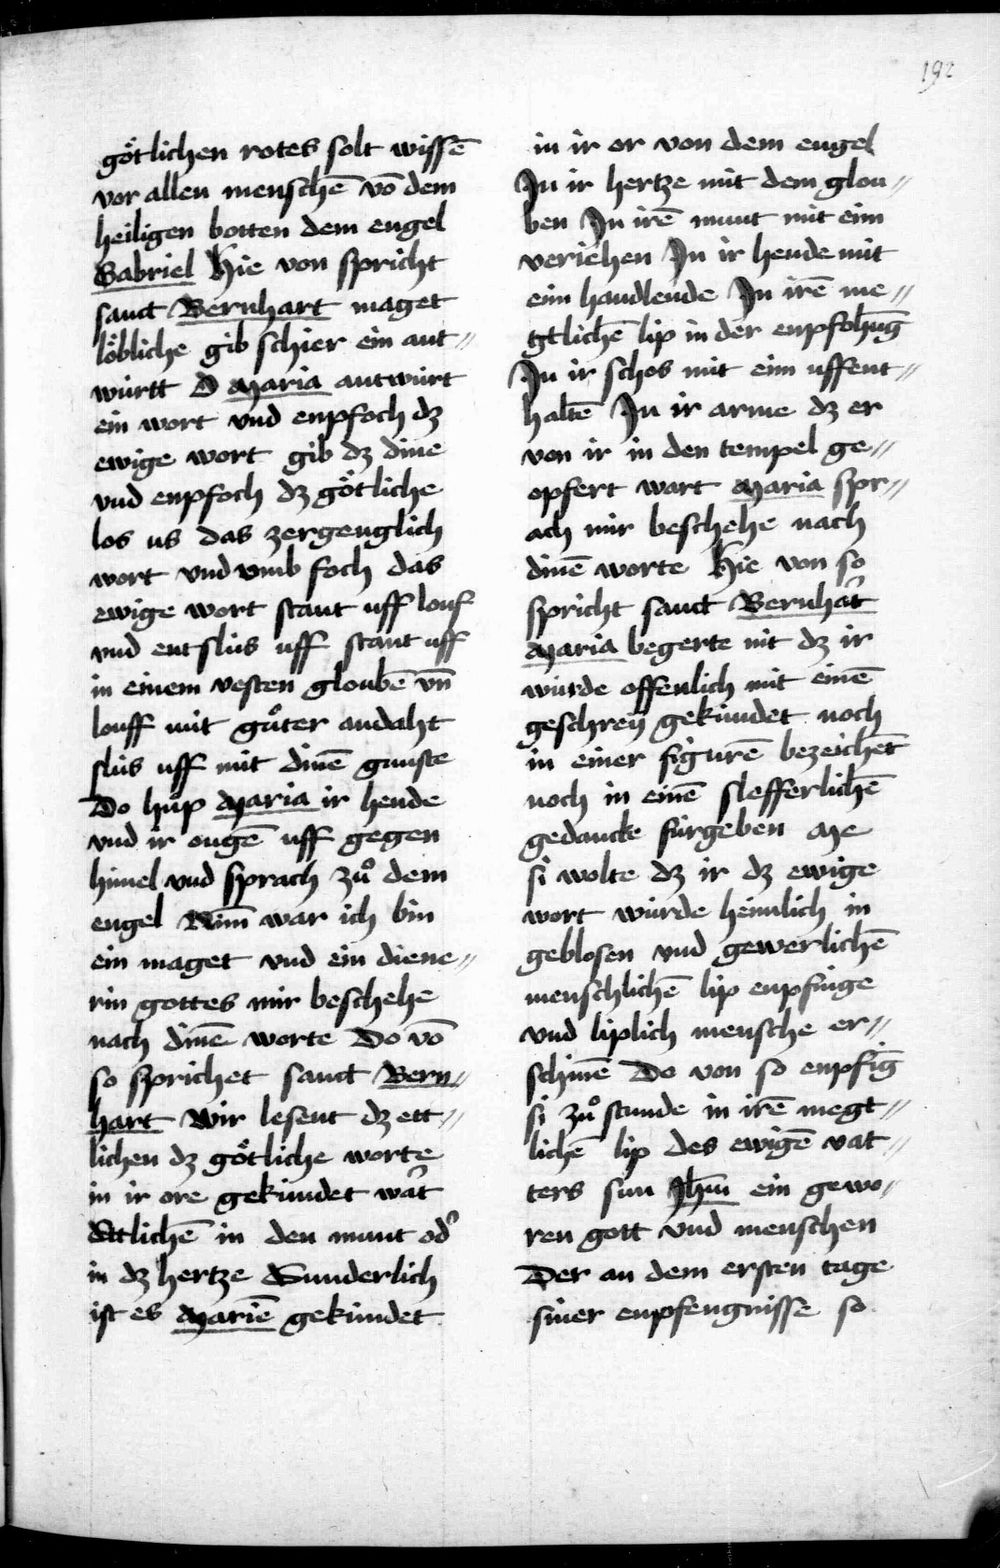 192
götlichen rotes solt wissē
vor allen menschē vō dem
heiligen botten dem engel
Gabriel Hie von spricht
sanct Bernhart maget
löbliche gib schier ein ant⸗
württ O Maria antwürt
ein wort vnd enpfoch dz
ewige wort gib dz dine
vnd enpfoch dz götliche
los us das zergenglich
wort vnd vmb foch das
ewige wort stant uff louf
vnd entslús uff stant uff
in einem vesten gloubē vn̄
louff mit gůter andaht
slús uff mit dinē gunste
Do hůp Maria ir hende
vnd ir ougē uff gegen
himel vnd sprach zů dem
engel Nim̄ war ich bin
ein maget vnd ein diene⸗
rin gottes mir beschehe
nach dinē worte Do vō
so sprichet sanct Bern⸗
hart Wir lesent dz ett⸗
lichen dz götliche worte
in ir ore gekúndet wart
Ettlichē in den munt od'
in dz hertze Sunderlich
ist es Mariē gekúndet
in ir or von dem engel
In ir hertze mit dem glou⸗
ben In irē munt mit eim
veriehen In ir hende mit
eim handlende In irē me⸗
gtlichē lip in der enpfohūg
In ir schos mit eim uffent⸗
haltē In ir arme dz er
von ir in den tempel ge⸗
opfert wart Maria spr⸗
ach mir beschehe nach
dinē worte Hie von so
spricht sanct Bernhāt
Maria begerte nit dz ir
würde offenlich mit einē
geschrey gekúndet noch
in einer figurē bezeichēt
noch in einē slefferlichē
gedancke fúrgeben Me
si wolte dz ir dz ewige
wort würde heimlich in
geblosen vnd gewerlichē
menschlichē lip enpfinge
vnd liplich mensche er⸗
schinē Do von so enpfīg
si zů stunde in irē megt⸗
lichē lip des ewigē vat⸗
ters sun Jhm̄ ein gewo⸗
ren gott vnd menschen
Der an dem ersten tage
siner enpfengnisse so